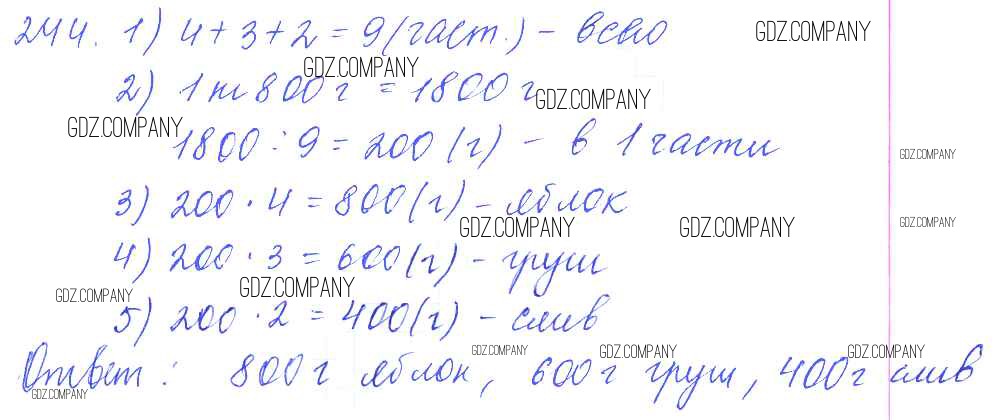 244. 1) 4+3+2=9(част.) – всего
GDZ.COMPANY
GDZ.COMPANY
2) 1 кг 800 г = 1800 г
GDZ.COMPANY
GDZ.COMPANY
1800 : 9 = 200 (г) – в 1 части
GDZ.COMPANY
3) 200 · 4 = 800(г) – яблок
GDZ.COMPANY
GDZ.COMPANY
GDZ.COMPANY
4) 200 · 3 = 600(г) – груш
GDZ.COMPANY
GDZ.COMPANY
5) 200 · 2 = 400(г) – слив
GDZ.COMPANY
GDZ.COMPANY
GDZ.COMPANY
Ответ : 800 г яблок, 600 г груш, 400 г слив
GDZ.COMPANY